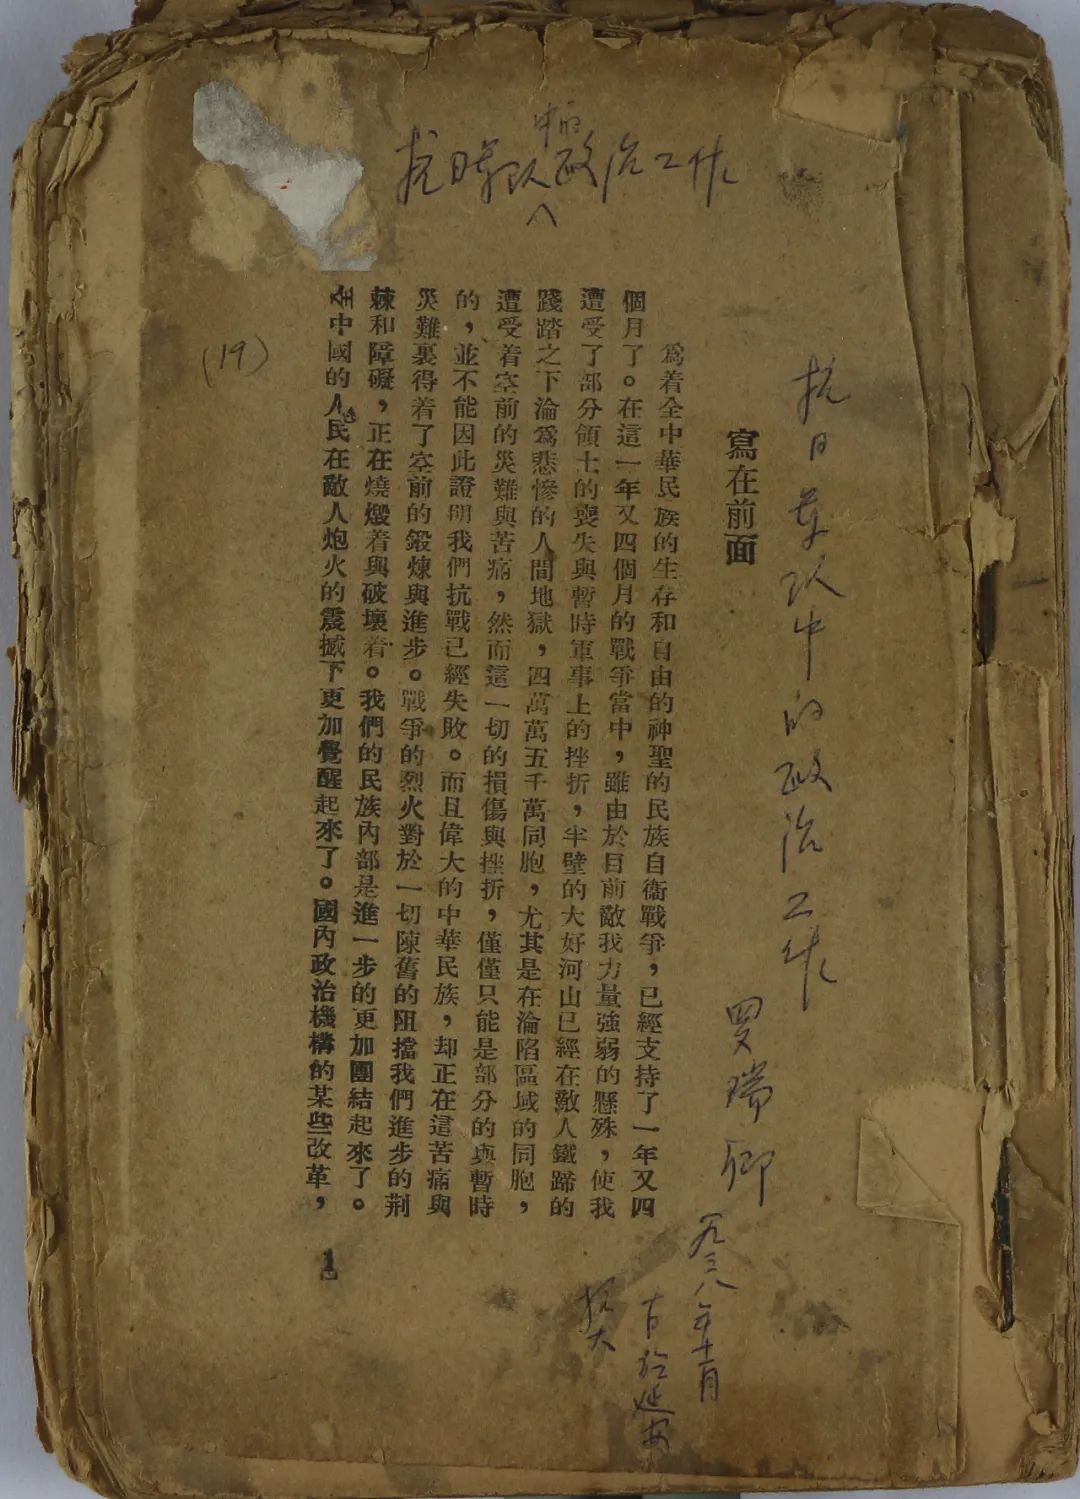 抗日軍队中的政治工作
抗日軍队中的政治工作
罗瑞卿
一九三八年十一月
于延安
抗大
(19)
寫在前面
爲着全中華民族的生存和自由的神聖的民族自衞戰爭，已經支持了一年又四
個月了。在這一年又四個月的戰爭當中，雖由於目前敵我力量強弱的懸殊，使我
遭受了部分領土的喪失與暫時軍事上的挫折，半壁的大好河山已經在敵人鐵蹄的
踐踏之下淪爲悲慘的人間地獄，四萬萬五千萬同胞，尤其是在淪陷區域的同胞，
遭受着空前的災難與苦痛，然而這一切的損傷與挫折，僅僅只能是部分的與暫時
的，並不能因此證明我們抗戰已經失敗。而且偉大的中華民族，却正在這苦痛與
災難裏得着了空前的鍛煉與進步。戰爭的烈火對於一切陳舊的阻擋我們進步的荆
棘和障礙，正在燒燬着與破壞着。我們的民族內部是進一步的更加團結起來了。
中國的人民在敵人炮火的震撼下更加覺醒起來了。國內政治機構的某些改革，
1